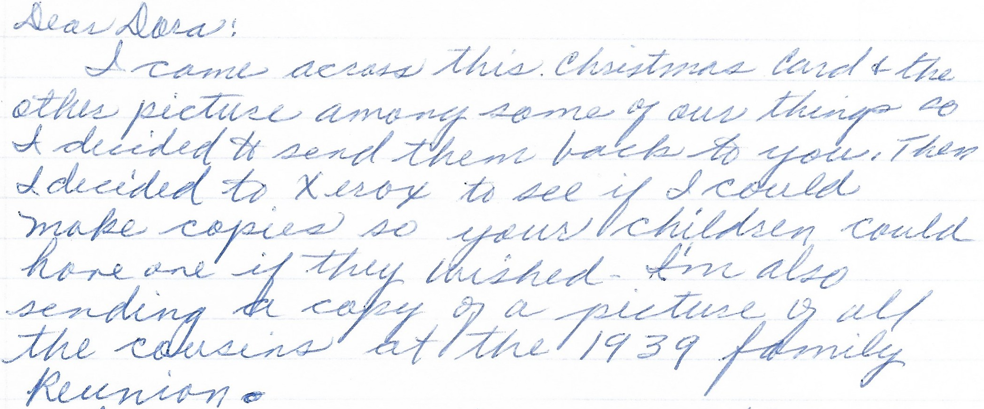 Dear Dora:
I came across this Christmas Card & the
other picture among some of our things so
I decided to send them back to you. Then
I decided to Xerox to see if I could
make copies so your children could
have one if they wished - I'm also
sending a copy of a picture of all
the cousins at the 1939 family
Reunion.